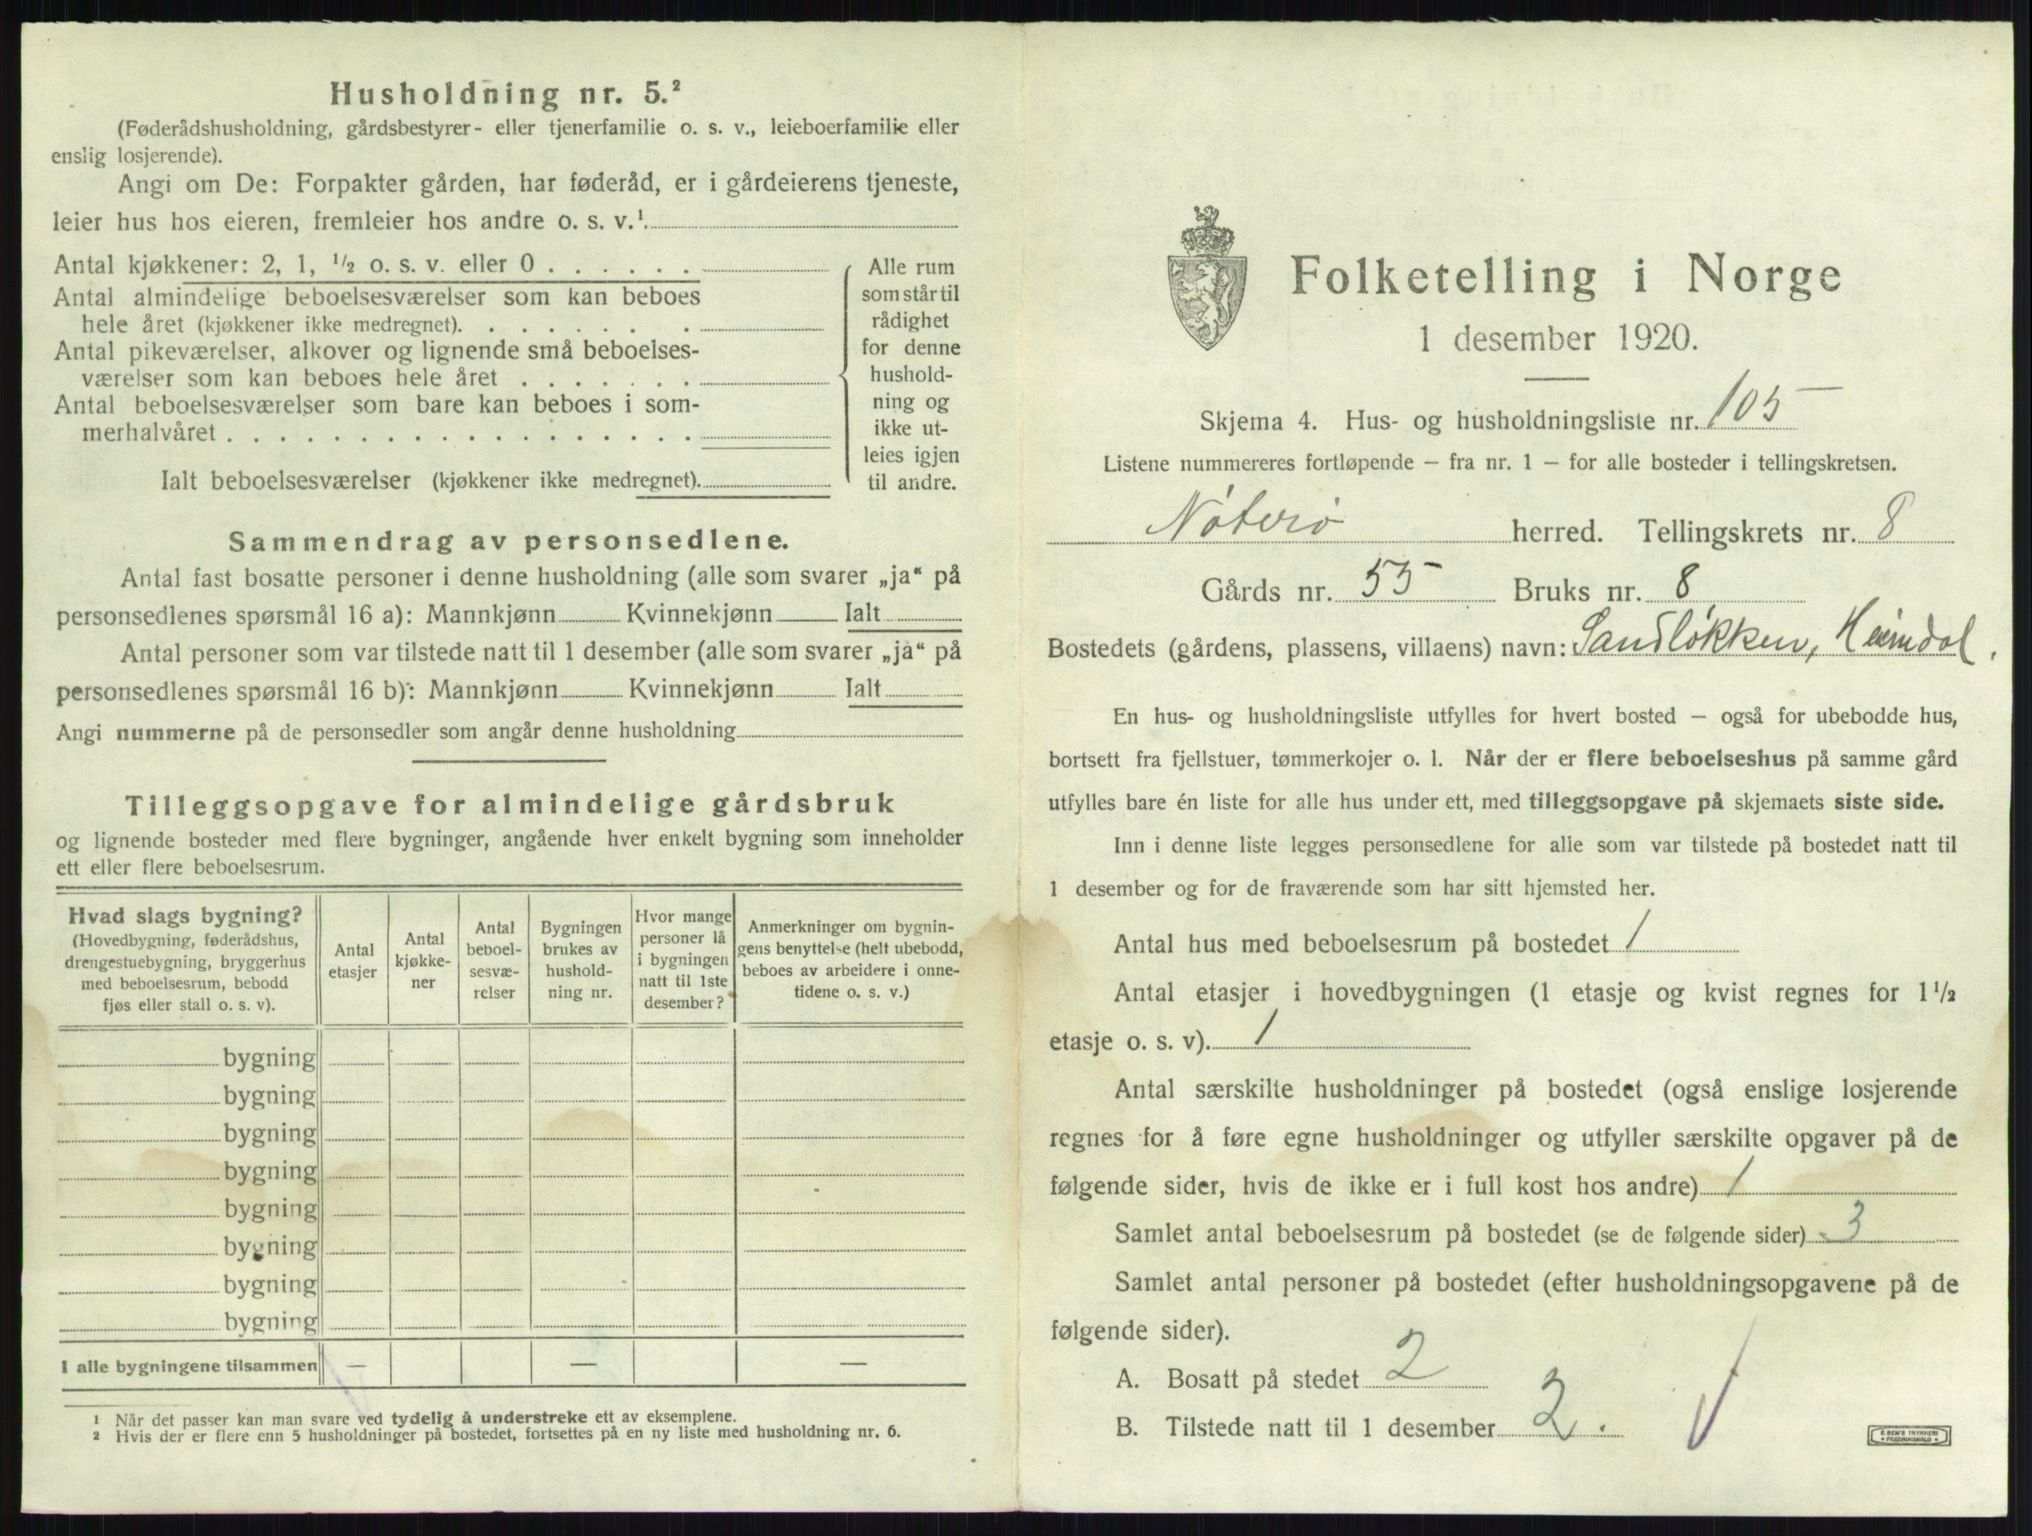 Husholdning nr. 5.²
(Føderådshusholdning, gårdsbestyrer- eller tjenerfamilie o. s. v., leieboerfamilie eller
enslig losjerende).
Angi om De: Forpakter gården, har føderåd, er i gårdeierens tjeneste,
leier hus hos eieren, fremleier hos andre o. s. v.¹.
Antal kjøkkener: 2, 1, ¹/₂ o. s. v. eller 0 . . . . . .
Antal almindelige beboelsesværelser som kan beboes
hele året (kjøkkener ikke medregnet). . . . . . . .
Antal pikeværelser, alkover og lignende små beboelses-
værelser som kan beboes hele året . . . . . . .
Antal beboelsesværelser som bare kan beboes i som-
merhalvåret . . . . . . . . . . . . . . . . .
Ialt beboelsesværelser (kjøkkener ikke medregnet).
Alle rum
som står til
rådighet
for denne
hushold-
ning og
ikke ut-
leies igjen
til andre.
Sammendrag av personsedlene.
Antal fast bosatte personer i denne husholdning (alle som svarer „ja“ på
personsedlenes spørsmål 16 a): Mannkjønn Kvinnekjønn Ialt
Antal personer som var tilstede natt til 1 desember (alle som svarer „ja“ på
personsedlenes spørsmål 16 b): Mannkjønn Kvinnekjønn Ialt
Angi nummerne på de personsedler som angår denne husholdning
Tilleggsopgave for almindelige gårdsbruk
og lignende bosteder med flere bygninger, angående hver enkelt bygning som inneholder
ett eller flere beboelsesrum.
Hvad slags bygning?
(Hovedbygning, føderådshus,
drengestuebygning, bryggerhus
med beboelsesrum, bebodd
fjøs eller stall o. s. v).
Antal
etasjer
Antal
kjøkke-
ner
Antal
beboel-
sesvæ-
relser
Bygningen
brukes av
hushold-
ning nr.
Hvor mange
personer lå
i bygningen
natt til 1ste
desember?
Anmerkninger om bygnin-
gens benyttelse (helt ubebodd,
beboes av arbeidere i onne-
tidene o. s. v.)
bygning
bygning
bygning
bygning
bygning
bygning
bygning
bygning
I alle bygningene tilsammen — — —
¹ Når det passer kan man svare ved tydelig å understreke ett av eksemplene.
² Hvis der er flere enn 5 husholdninger på bostedet, fortsettes på en ny liste med husholdning nr. 6.
Folketelling i Norge
1 desember 1920.
Skjema 4. Hus- og husholdningsliste nr. 105
Listene nummereres fortløpende – fra nr. 1 – for alle bosteder i tellingskretsen.
Nøterø herred. Tellingskrets nr. 8
Gårds nr. 55 Bruks nr. 8
Bostedets (gårdens, plassens, villaens) navn: Sandløkken, Heimdal.
En hus- og husholdningsliste utfylles for hvert bosted – også for ubebodde hus,
bortsett fra fjellstuer, tømmerkojer o. l. Når der er flere beboelseshus på samme gård
utfylles bare én liste for alle hus under ett, med tilleggsopgave på skjemaets siste side.
Inn i denne liste legges personsedlene for alle som var tilstede på bostedet natt til
1 desember og for de fraværende som har sitt hjemsted her.
Antal hus med beboelsesrum på bostedet 1
Antal etasjer i hovedbygningen (1 etasje og kvist regnes for 1¹/₂
etasje o. s. v). 1
Antal særskilte husholdninger på bostedet (også enslige losjerende
regnes for å føre egne husholdninger og utfyller særskilte opgaver på de
følgende sider, hvis de ikke er i full kost hos andre) 1
Samlet antal beboelsesrum på bostedet (se de følgende sider) 3
Samlet antal personer på bostedet (efter husholdningsopgavene på de
følgende sider).
A. Bosatt på stedet 2
B. Tilstede natt til 1 desember 2.
E. SEM'S TRYKKERI
FREDRIKSHALD